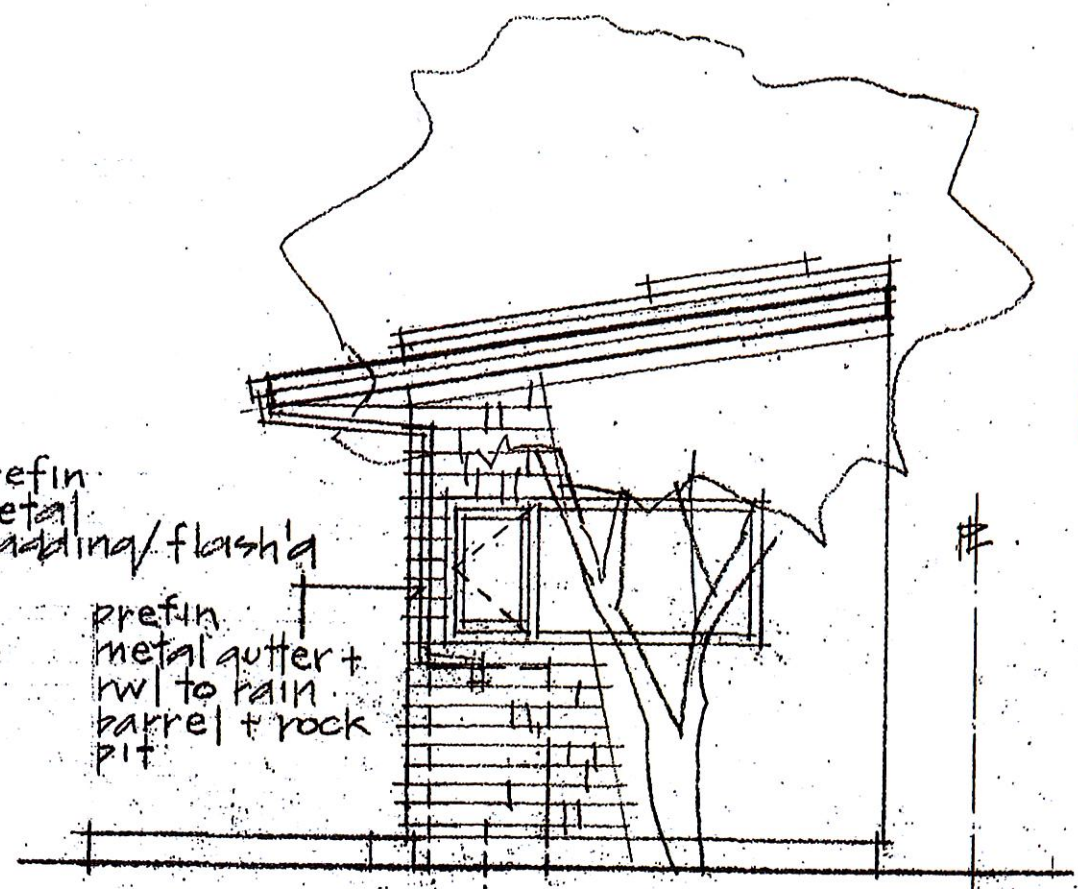 efin
etal
adding/flash'g
prefin
metal gutter +
rwl to rain
barrel + rock
pit
PL